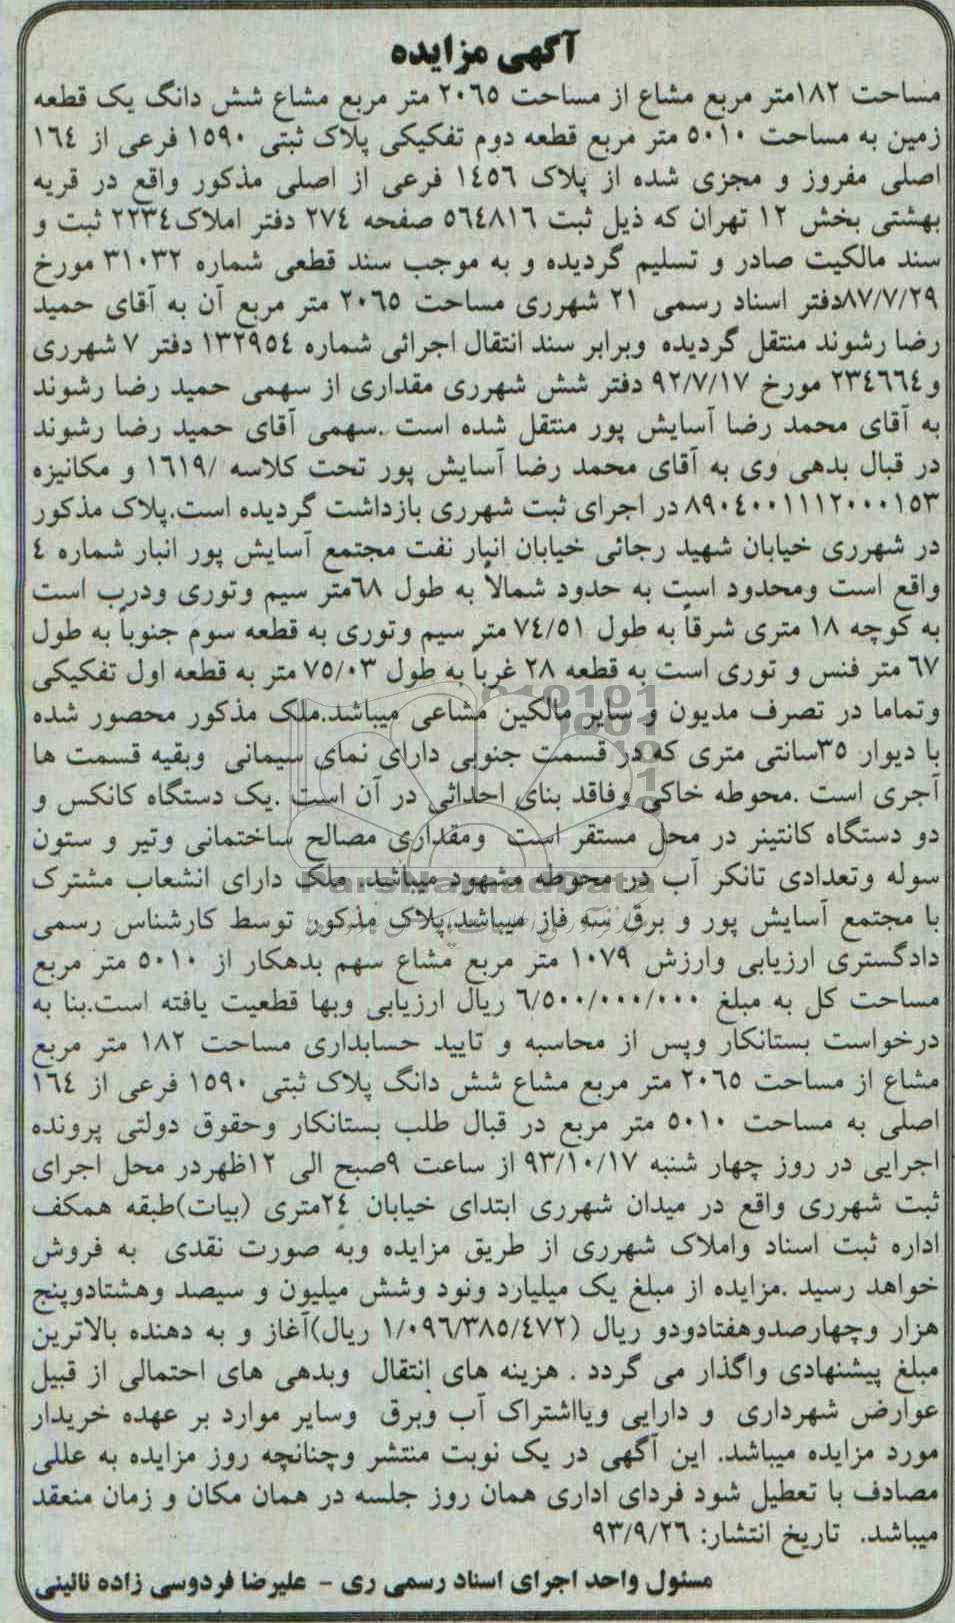 آگهی مزایده
مساحت ۱۸۲متر مربع مشاع از مساحت ۲۰۶۵ متر مربع مشاع شش دانگ یک قطعه
زمین به مساحت ۵۰۱۰ متر مربع قطعه دوم تفکیکی پلاک ثبتی ۱۵۹۰ فرعی از ۱۶۴
اصلی مفروز و مجزی شده از پلاک ۱۴۵۶ فرعی از اصلی مذکور واقع در قریه
بهشتی بخش ۱۲ تهران که ذیل ثبت ۵۶۴۸۱۶ صفحه ۲۷۴ دفتر املاک۲۲۳۴ ثبت و
سند مالکیت صادر و تسلیم گردیده و به موجب سند قطعی شماره ۳۱۰۳۲ مورخ
۸۷/۷/۲۹دفتر اسناد رسمی ۲۱ شهرری مساحت ۲۰۶۵ متر مربع آن به آقای حمید
رضا رشوند منتقل گردیده وبرابر سند انتقال اجرائی شماره ۱۳۲۹۵۴ دفتر ۷ شهرری
و۲۳۴۶۶۴ مورخ ۹۲/۷/۱۷ دفتر شش شهرری مقداری از سهمی حمید رضا رشوند
به آقای محمد رضا آسایش پور منتقل شده است .سهمی آقای حمید رضا رشوند
در قبال بدهی وی به آقای محمد رضا آسایش پور تحت کلاسه /۱۶۱۹ و مکانیزه
۸۹۰۴۰۰۱۱۱۲۰۰۰۱۵۳ در اجرای ثبت شهرری بازداشت گردیده است.پلاک مذکور
در شهرری خیابان شهید رجائی خیابان انبار نفت مجتمع آسایش پور انبار شماره ۴
واقع است ومحدود است به حدود شمالاً به طول ۶۸متر سیم وتوری ودرب است
به کوچه ۱۸ متری شرقاً به طول ۷۴/۵۱ متر سیم وتوری به قطعه سوم جنوباً به طول
۶۷ متر فنس و توری است به قطعه ۲۸ غرباً به طول ۷۵/۰۳ متر به قطعه اول تفکیکی
وتماما در تصرف مدیون و سایر مالکین مشاعی میباشد.ملک مذکور محصور شده
با دیوار ۳۵سانتی متری که در قسمت جنوبی دارای نمای سیمانی وبقیه قسمت ها
آجری است .محوطه خاکی وفاقد بنای احداثی در آن است .یک دستگاه کانکس و
دو دستگاه کانتینر در محل مستقر است ومقداری مصالح ساختمانی وتیر و ستون
سوله وتعدادی تانکر آب در محوطه مشهود میباشد. ملک دارای انشعاب مشترک
با مجتمع آسایش پور و برق سه فاز میباشد.پلاک مذکور توسط کارشناس رسمی
دادگستری ارزیابی وارزش ۱۰۷۹ متر مربع مشاع سهم بدهکار از ۵۰۱۰ متر مربع
مساحت کل به مبلغ ۶/۵۰۰/۰۰۰/۰۰۰ ریال ارزیابی وبها قطعیت یافته است.بنا به
درخواست بستانکار وپس از محاسبه و تایید حسابداری مساحت ۱۸۲ متر مربع
مشاع از مساحت ۲۰۶۵ متر مربع مشاع شش دانگ پلاک ثبتی ۱۵۹۰ فرعی از ۱۶۴
اصلی به مساحت ۵۰۱۰ متر مربع در قبال طلب بستانکار وحقوق دولتی پرونده
اجرایی در روز چهار شنبه ۹۳/۱۰/۱۷ از ساعت ۹صبح الی ۱۲ظهردر محل اجرای
ثبت شهرری واقع در میدان شهرری ابتدای خیابان ۲۴متری (بیات)طبقه همکف
اداره ثبت اسناد واملاک شهرری از طریق مزایده وبه صورت نقدی به فروش
خواهد رسید .مزایده از مبلغ یک میلیارد ونود وشش میلیون و سیصد وهشتادوپنج
هزار وچهارصدوهفتادودو ریال (۱/۰۹۶/۳۸۵/۴۷۲ ریال)آغاز و به دهنده بالاترین
مبلغ پیشنهادی واگذار می گردد . هزینه های انتقال وبدهی های احتمالی از قبیل
عوارض شهرداری و دارایی ویااشتراک آب وبرق وسایر موارد بر عهده خریدار
مورد مزایده میباشد. این آگهی در یک نوبت منتشر وچنانچه روز مزایده به عللی
مصادف با تعطیل شود فردای اداری همان روز جلسه در همان مکان و زمان منعقد
میباشد. تاریخ انتشار: ۹۳/۹/۲۶
مسئول واحد اجرای اسناد رسمی ری - علیرضا فردوسی زاده نائینی